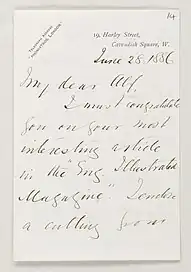 14
19, Harley Street,
Cavendish Square, W.
June 28. 1886
My dear Alf,
I must congratulate
you on your most
interesting article
in the "Eng. Illustrated
Magazine".
a cutting from